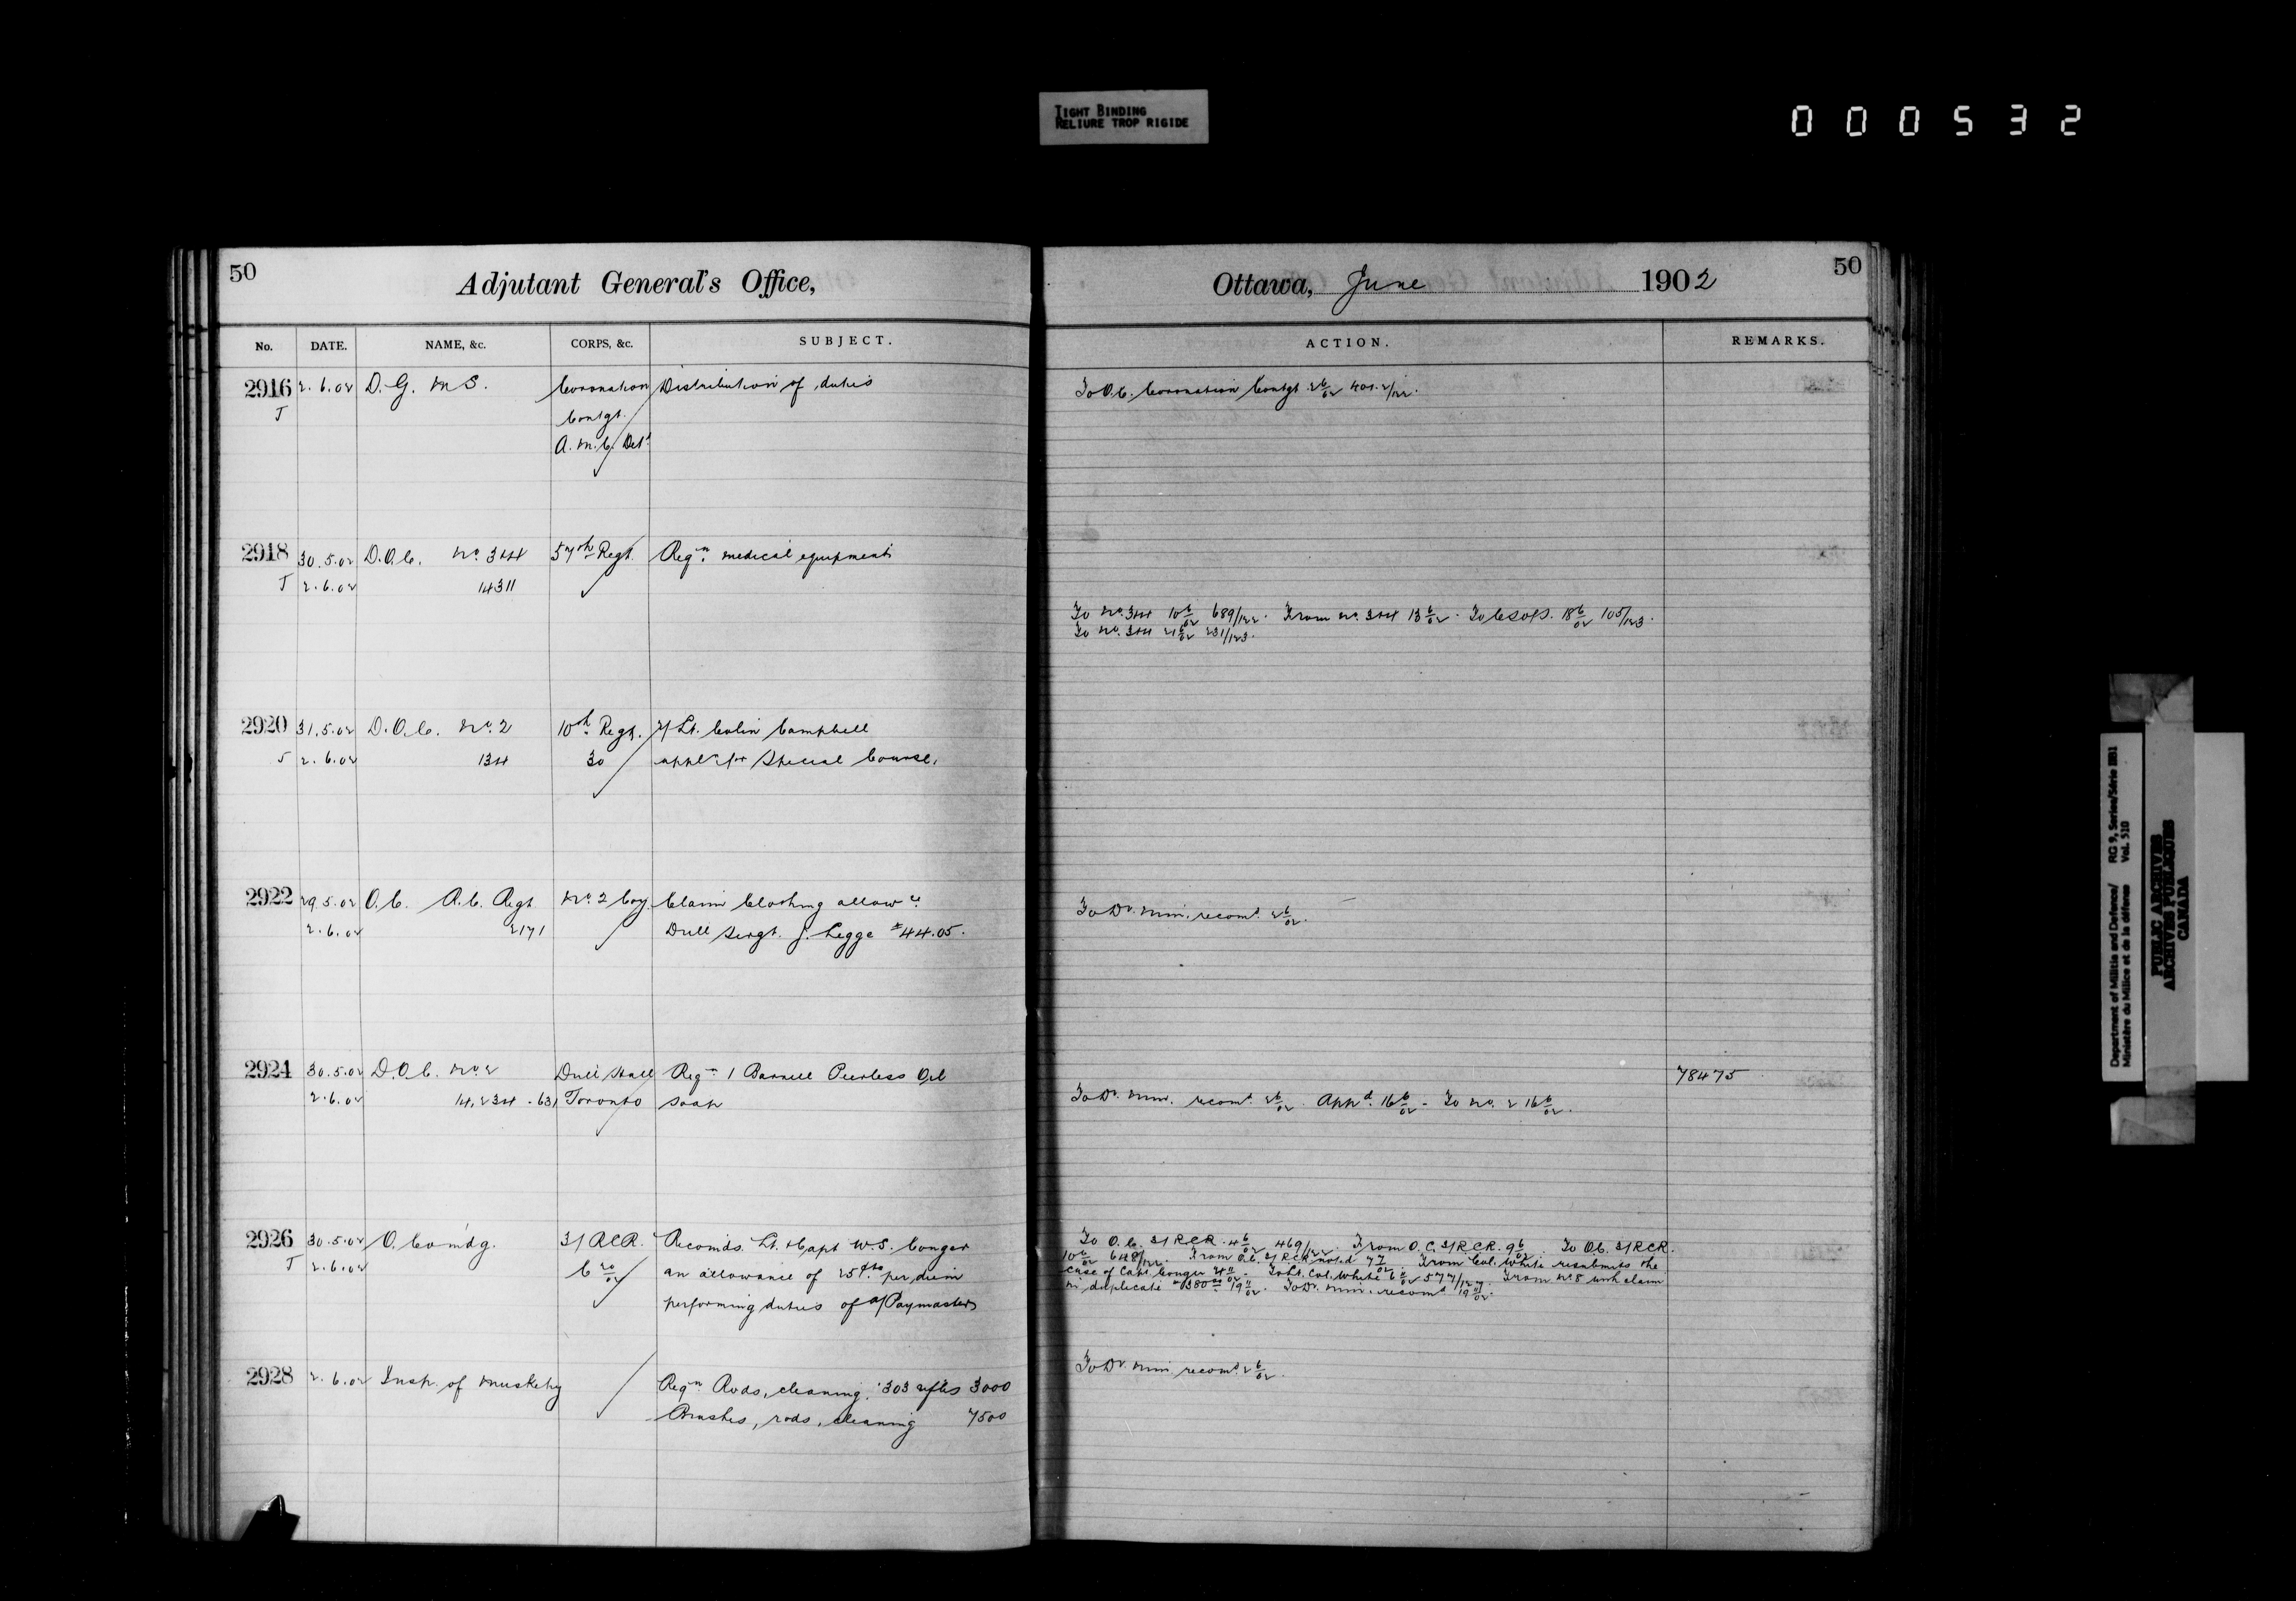 TIGHT BINDING
RELIURE TROP RIGIDE
000532
50
Adjutant General's Office,
No. DATE. NAME, &c. CORPS, &c. SUBJECT.
2916 2.6.02 D.G.M.S. Coronation Distribution of duties
T Contgt.
A.M.C. Det.
2918 30.5.02 D.O.C. No. 3&4 57th Regt. Reqn. medical equipment
T 2.6.02 14311
2920 31.5.02 D.O.C. No. 2 10th Regt. 2/Lt. Colin Campbell
5 2.6.02 134 30 appln. for Special Course.
2922 29.5.02 O.C. R.C. Regt. No. 2 Coy. Claim Clothing allowce.
2.6.02 2171 Drill Sergt. J. Legge $44.05.
2924 30.5.02 D.O.C. No. 2 Drill Hall Reqn 1 Barrell Peerless Oil
2.6.02 14,234-631 Toronto soap
2926 30.5.02 O. Comdg. 3/RCR. Recomds. Lt. & Capt W.S. Conger
T 2.6.02 C 20/02 an allowance of 25cts per diem
performing duties of a/Paymaster
2928 2.6.02 Insp. of Musketry Reqn Rods, cleaning .303 rifles 3000
Brushes, rods, cleaning 7500
50
Ottawa, June 1902
ACTION. REMARKS.
To O.C. Coronation Contgt. 2 6/02 401.2/122.
To No. 3&4 10 6/02 689/122. From No. 3&4 13 6/02. To CSofS. 18 6/02 105/123.
To No. 3&4 21 6/02 231/123.
To Dr. Min. recomd. 2 6/02.
78475
To Dr. Min. recomd. 2 6/02. Appd. 16 6/02 - To No. 2 16 6/02.
To O.C. 3/RCR. 4 6/02 469/122. From O.C. 3/RCR. 9 6/02. To O.C. 3/RCR.
10 6/02 648/122. From O.C. 3/RCR noted 7 7/02. From Col. White resubmits the
case of Capt. Conger 4 11/02. To Lt. Col. White 6 11/02 577/127. From No 8 with claim
in duplicate $1380.00 19 11/02. To Dr. Min. recomd 19 11/02.
To Dr. Min. recomd. 2 6/02.
Department of Militia and Defence/ RG 9, Series/Série IIB1
Ministère du Milice et de la défense Vol. 510
PUBLIC ARCHIVES
ARCHIVES PUBLIQUES
CANADA